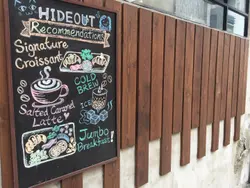 HIDEOUT
Recommendations
Signature
Croissant
COLD
BREW
ICED
Salted Caramel
Latte
Jumbo
Breakfast!